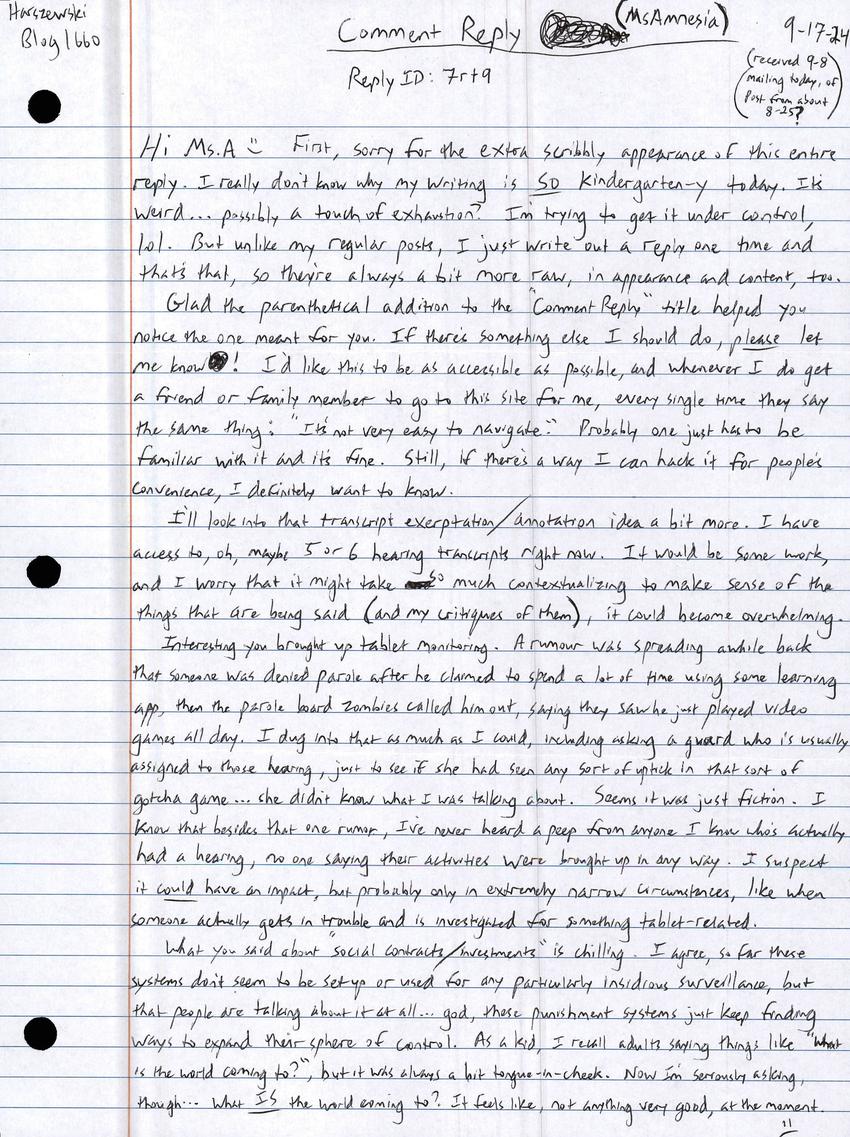 Harszewski
Blog/660
Comment Reply (MsAmnesia)
9-17-24
Reply ID: 7rt9
(received 9-8
mailing today, of
Post from about
8-25?)
Hi Ms. A First, sorry for the extra scribbly appearance of this entire
reply. I really don't know why my writing is SO kindergarten-y today. It's
weird... possibly a touch of exhaustion? I'm trying to get it under control,
lol. But unlike my regular posts, I just write out a reply one time and
that's that, so they're always a bit more raw, in appearance and content, too.
Glad the parenthetical addition to the "Comment Reply" title helped you
notice the one meant for you. If there's something else I should do, please let
me know! I'd like this to be as accessible as possible, and whenever I do get
a friend or family member to go to this site for me, every single time they say
the same thing: "It's not very easy to navigate." Probably one just has to be
familiar with it and it's fine. Still, if there's a way I can hack it for people's
convenience, I definitely want to know.
I'll look into that transcript exerptation/annotation idea a bit more. I have
access to, oh, maybe 5 or 6 hearing transcripts right now. It would be some work,
and I worry that it might take so much contextualizing to make sense of the
things that are being said (and my critiques of them), it could become overwhelming.
Interesting you brought up tablet monitoring. A rumour was spreading awhile back
that someone was denied parole after he claimed to spend a lot of time using some learning
app, then the parole board zombies called him out, saying they saw he just played video
games all day. I dug into that as much as I could, including asking a guard who is usually
assigned to those hearing, just to see if she had seen any sort of uptick in that sort of
gotcha game... she didn't know what I was talking about. Seems it was just fiction. I
know that besides that one rumor, I've never heard a peep from anyone I know who's actually
had a hearing, no one saying their activities were brought up in any way. I suspect
it could have an impact, but probably only in extremely narrow circumstances, like when
someone actually gets in trouble and is investigated for something tablet-related.
What you said about "social contracts/investments" is chilling. I agree, so far these
systems don't seem to be set up or used for any particularly insidious surveillance, but
that people are talking about it at all... god, these punishment systems just keep finding
ways to expand their sphere of control. As a kid, I recall adults saying things like "What
is the world coming to?", but it was always a bit tongue-in-cheek. Now I'm seriously asking,
though... what IS the world coming to? It feels like, not anything very good, at the moment.